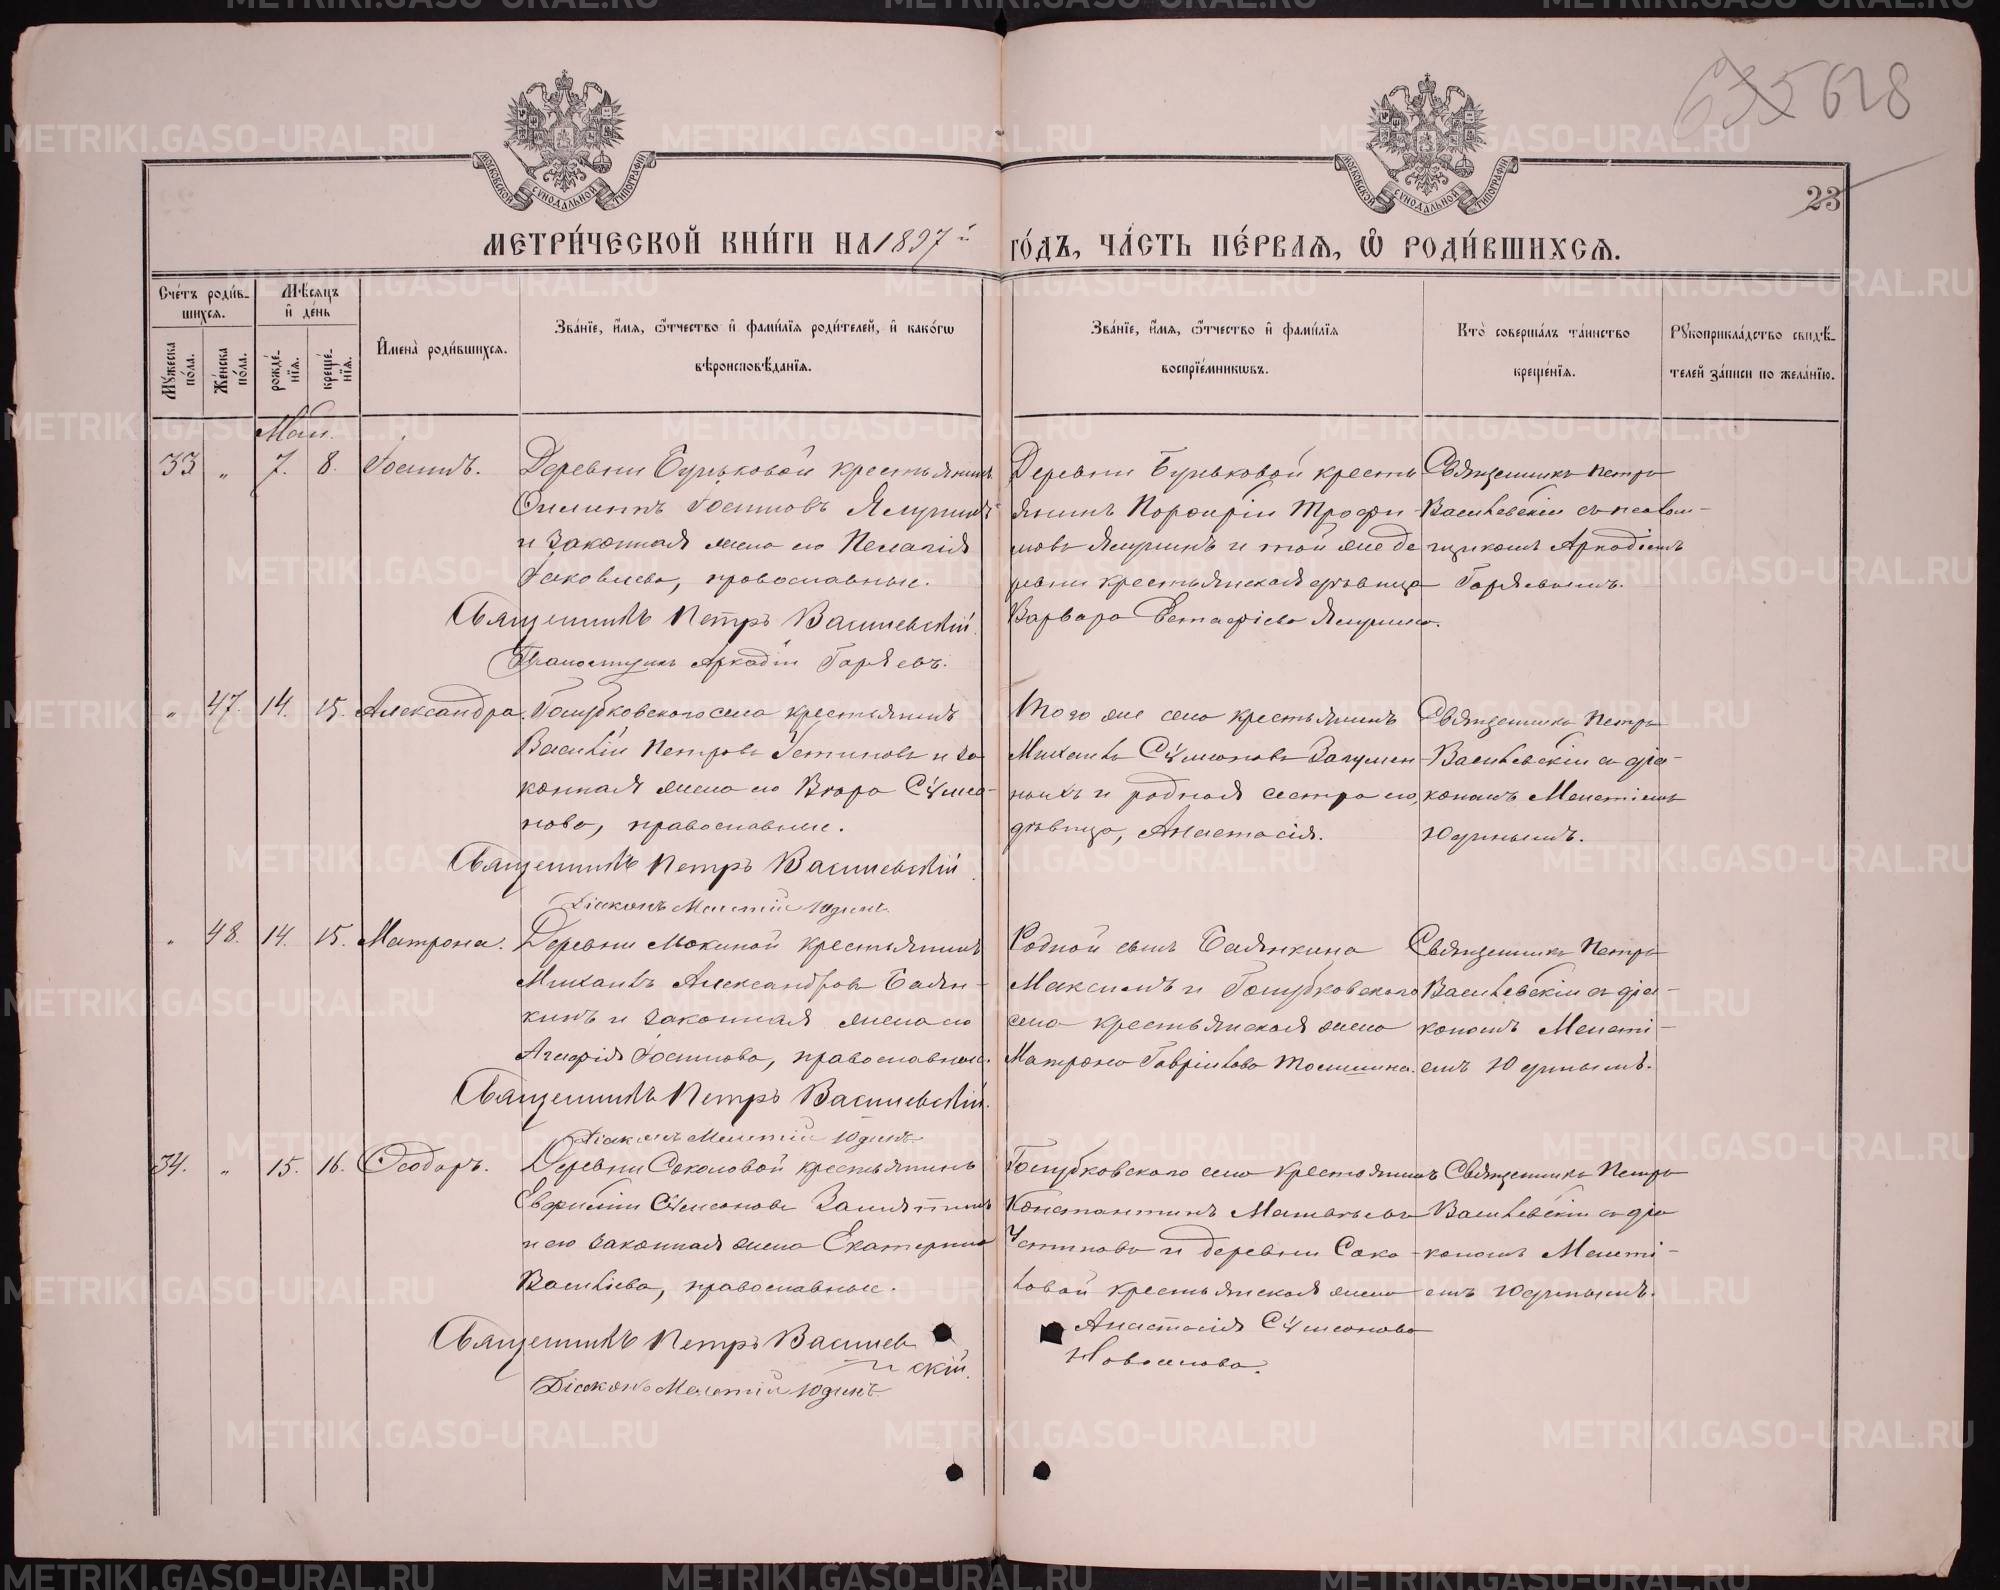 635 628
МОСКОВСКОЙ СѴНОДАЛЬНОЙ ТИПОГРАФІИ
МОСКОВСКОЙ СѴНОДАЛЬНОЙ ТИПОГРАФІИ
23
МЕТРИ́ЧЕСКОЙ КНИ́ГИ НА 1897й ГО́ДЪ, ЧА́СТЬ ПЕ́РВАЯ, Ѡ҆ РОДИ́ВШИХСЯ.
Сче́тъ роди́в-
шихся.
Мѣ́сяцъ
и҆ де́нь
Мꙋ́жеска по́ла.
Же́нска по́ла.
рожде́-
нїя.
креще́-
нїя.
И҆мена̀ роди́вшихся.
Зва́нїе, и҆́мя, ѻ҆́тчество и҆ фами́лїя роди́телей, и҆ како́гѡ
вѣроисповѣ́данїя.
Зва́нїе, и҆́мя, ѻ҆́тчество и҆ фами́лїя
воспрїе́мникѡвъ.
Кто̀ соверша́лъ та́инство
креще́нїя.
Рꙋкоприкла́дство свидѣ́-
телей за́писи по жела́нїю.
Май.
33 " 7. 8. Іосифъ.
Деревни Бунковой крестьянинъ
Филиппъ Іосифовъ
и законная жена его Пелагія
Іаковлева, православные.
Священникъ Петръ Василевскій.
Псаломщикъ Аркадій Горяевъ.
Деревни Бунковой кресть
янинъ Порфирій Трофи-
мовъ и той же де
ревни крестьянская дѣвица
Варвара Евстафіева
Священникъ Петръ
Василевскій съ псалом-
щикомъ Аркадіемъ
Горяевымъ.
" 47. 14. 15. Александра.
Голубковскаго села крестьянинъ
Василій Петровъ Устиновъ и за
конная жена его Вѣра Сѵмео-
нова, православные.
Священникъ Петръ Василевскій
Діаконъ Мелетій Юдинъ.
Того же села крестьянинъ
Михаилъ Сѵмеоновъ Загумен-
ныхъ и родная сестра его,
дѣвица, Анастасія.
Священникъ Петръ
Василевскій съ діа-
кономъ Мелетіемъ
Юдинымъ.
" 48. 14. 15. Матрона.
Деревни Мокиной крестьянинъ
Михаилъ Александровъ Балян-
кинъ и законная жена его
Агафія Іосифова, православные.
Священникъ Петръ Василевскій.
Діаконъ Мелетій Юдинъ.
Родной сынъ Балянкина
Максимъ и Голубковскаго
села крестьянская жена
Матрона Гавріилова
Священникъ Петръ
Василевскій съ діа-
кономъ Мелеті-
емъ Юдинымъ.
34. " 15. 16. Ѳеодоръ.
Деревни Соколовой крестьянинъ
Евфимій Сѵмеоновъ Замятинъ
и его законная жена Екатерина
Василіева, православные.
Священникъ Петръ Василев
скій.
Діаконъ Мелетій Юдинъ.
Голубковскаго села крестьянинъ
Константинъ Матвѣевъ
Устиновъ и деревни Соко-
ловой крестьянская жена
Анастасія Сѵмеонова
Новоселова.
Священникъ Петръ
Василевскій съ діа
кономъ Мелеті-
емъ Юдинымъ.
METRIKI.GASO-URAL.RU